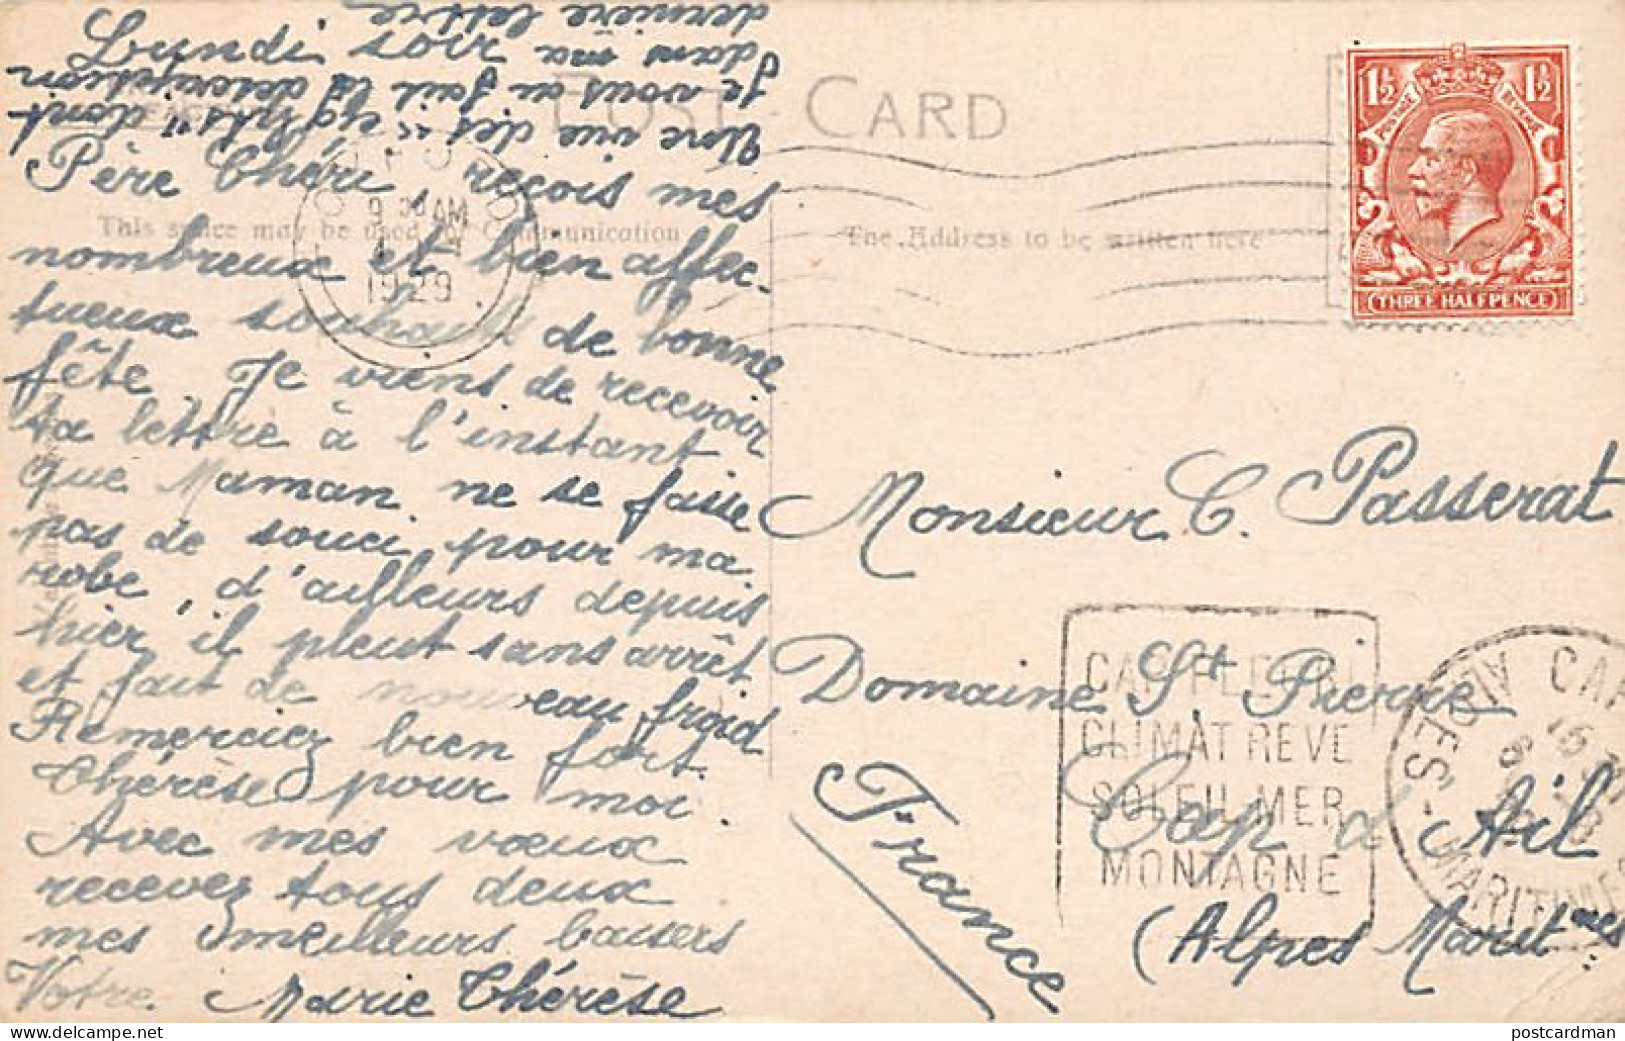 Lundi soir
Père Chéri, reçois mes
nombreux et bien affec-
tueux souhaits de bonne
fête. Je viens de recevoir
ta lettre à l'instant
que Maman ne se fasse
pas de souci pour ma
robe, d'ailleurs depuis
hier, il pleut sans arrêt
et fait de nouveau froid
Remerciez bien fort
Thérèse pour moi
Avec mes vœux
recevez tous deux
mes meilleurs baisers
Votre Marie Thérèse
Une vue des "eights" dont
je vous ai fait la description
dans ma
dernière lettre
POST CARD
This space may be used for Communication
The Address to be written here
OXFORD
9 30 AM
1929
1½ 1½
POSTAGE REVENUE
THREE HALFPENCE
Monsieur C. Passerat
Domaine St Pierre
Cap d'Ail
(Alpes Maritmes
France
CAP FLEURI
CLIMAT REVE
SOLEIL MER
MONTAGNE
CAP
ALPES-MARITIMES
postcardman